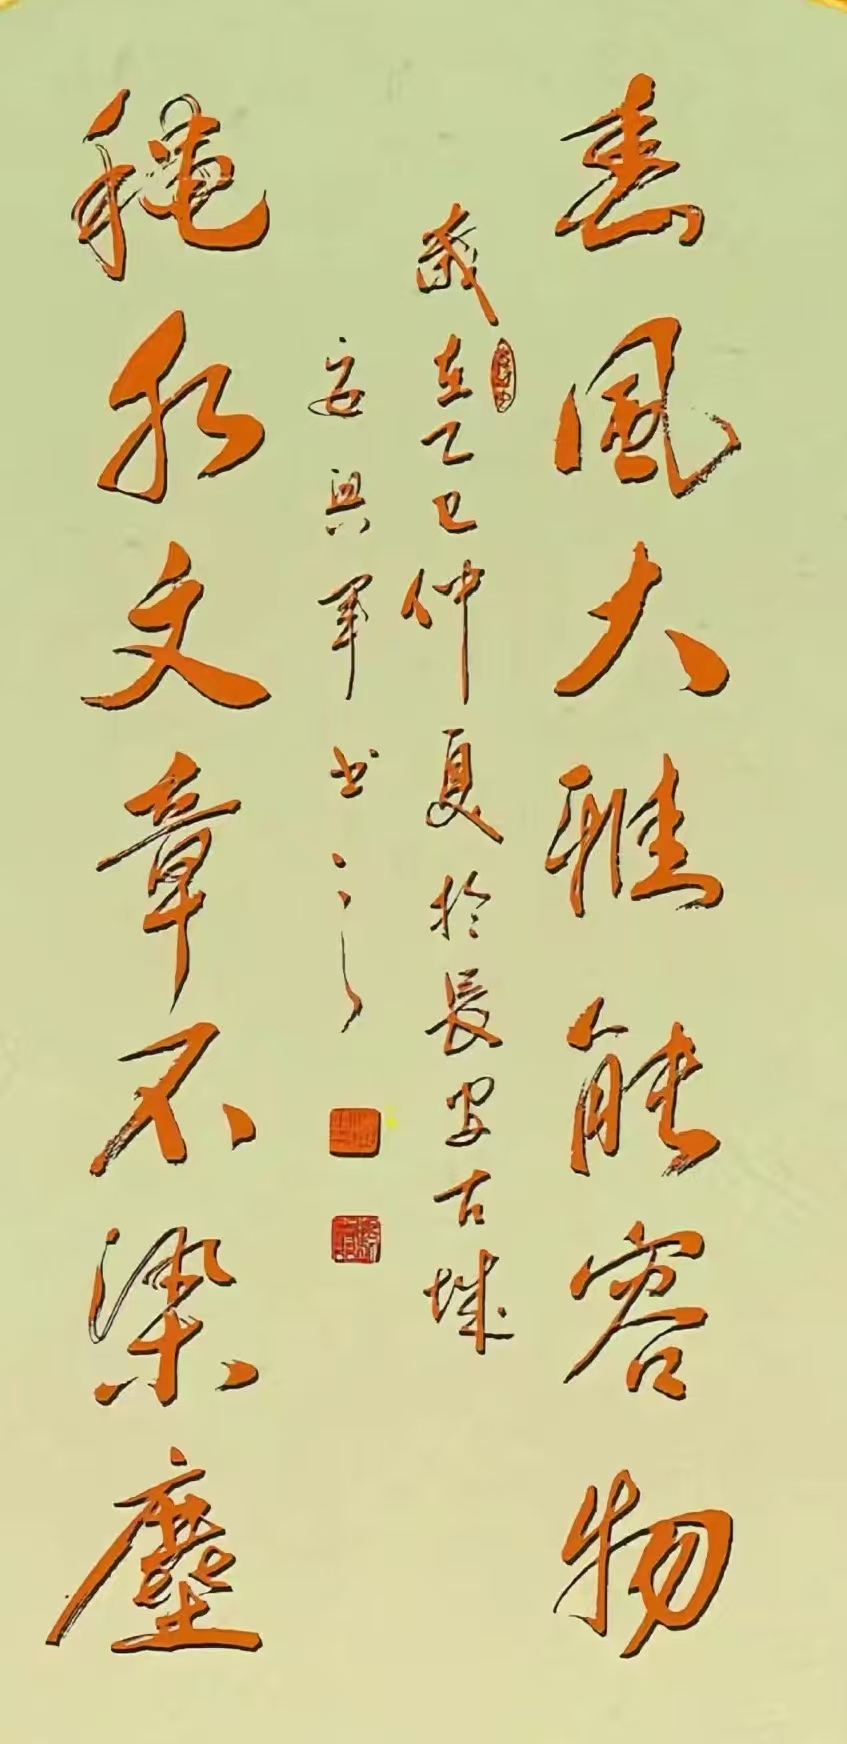 春風大雅能容物
歲在乙巳仲夏於長安古城
安興軍书之
穐水文章不染塵